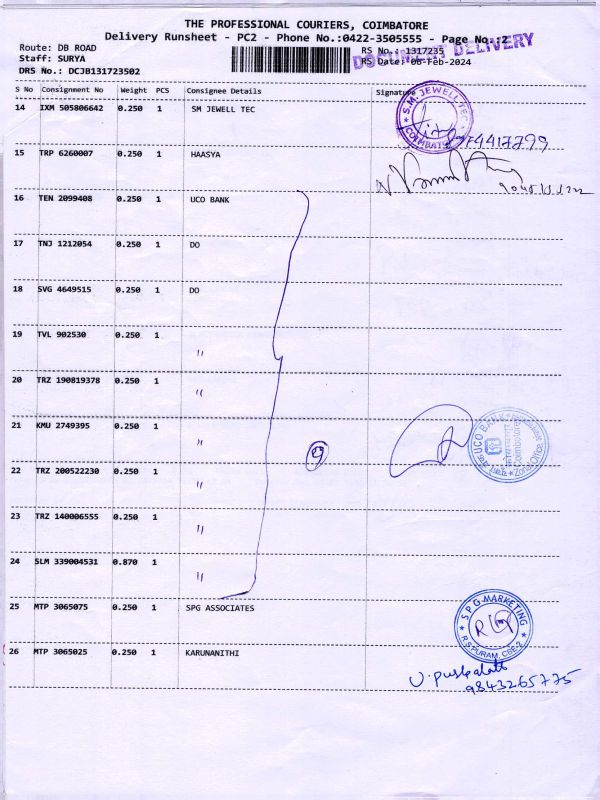 THE PROFESSIONAL COURIERS, COIMBATORE
Delivery Runsheet - PC2 - Phone No.:0422-3505555 - Page No.:2
DOCUMENT DELIVERY
Route: DB ROAD RS No.: 1317235
Staff: SURYA RS Date: 06-Feb-2024
DRS No.: DCJB131723502
S No Consignment No Weight PCS Consignee Details Signature
14 IXM 505806642 0.250 1 SM JEWELL TEC
S.M. JEWELL TEC COIMBATORE
15 TRP 6260007 0.250 1 HAASYA
16 TEN 2099408 0.250 1 UCO BANK
17 TNJ 1212054 0.250 1 DO
18 SVG 4649515 0.250 1 DO
19 TVL 902530 0.250 1 "
20 TRZ 190819378 0.250 1 "
21 KMU 2749395 0.250 1 "
9
UCO BANK Coimbatore Zonal Office
22 TRZ 200522230 0.250 1 "
23 TRZ 140006555 0.250 1 "
24 SLM 339004531 0.870 1 "
25 MTP 3065075 0.250 1 SPG ASSOCIATES
SPG MARKETING R.S PURAM, CBE-2
26 MTP 3065025 0.250 1 KARUNANITHI
9843265775